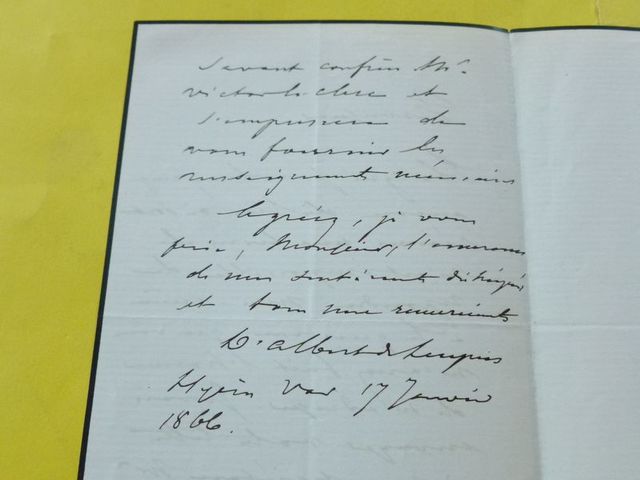 Savant confrère Mr.
victor le clerc et
s'empressera de
vous fournir les
renseignements nécessaires
Agréez, je vous
prie, Monsieur, l'assurance
de mes sentiments distingués
et tous mes remerciements
Dr Albert de
Hyères Var 17 Janvier
1866.